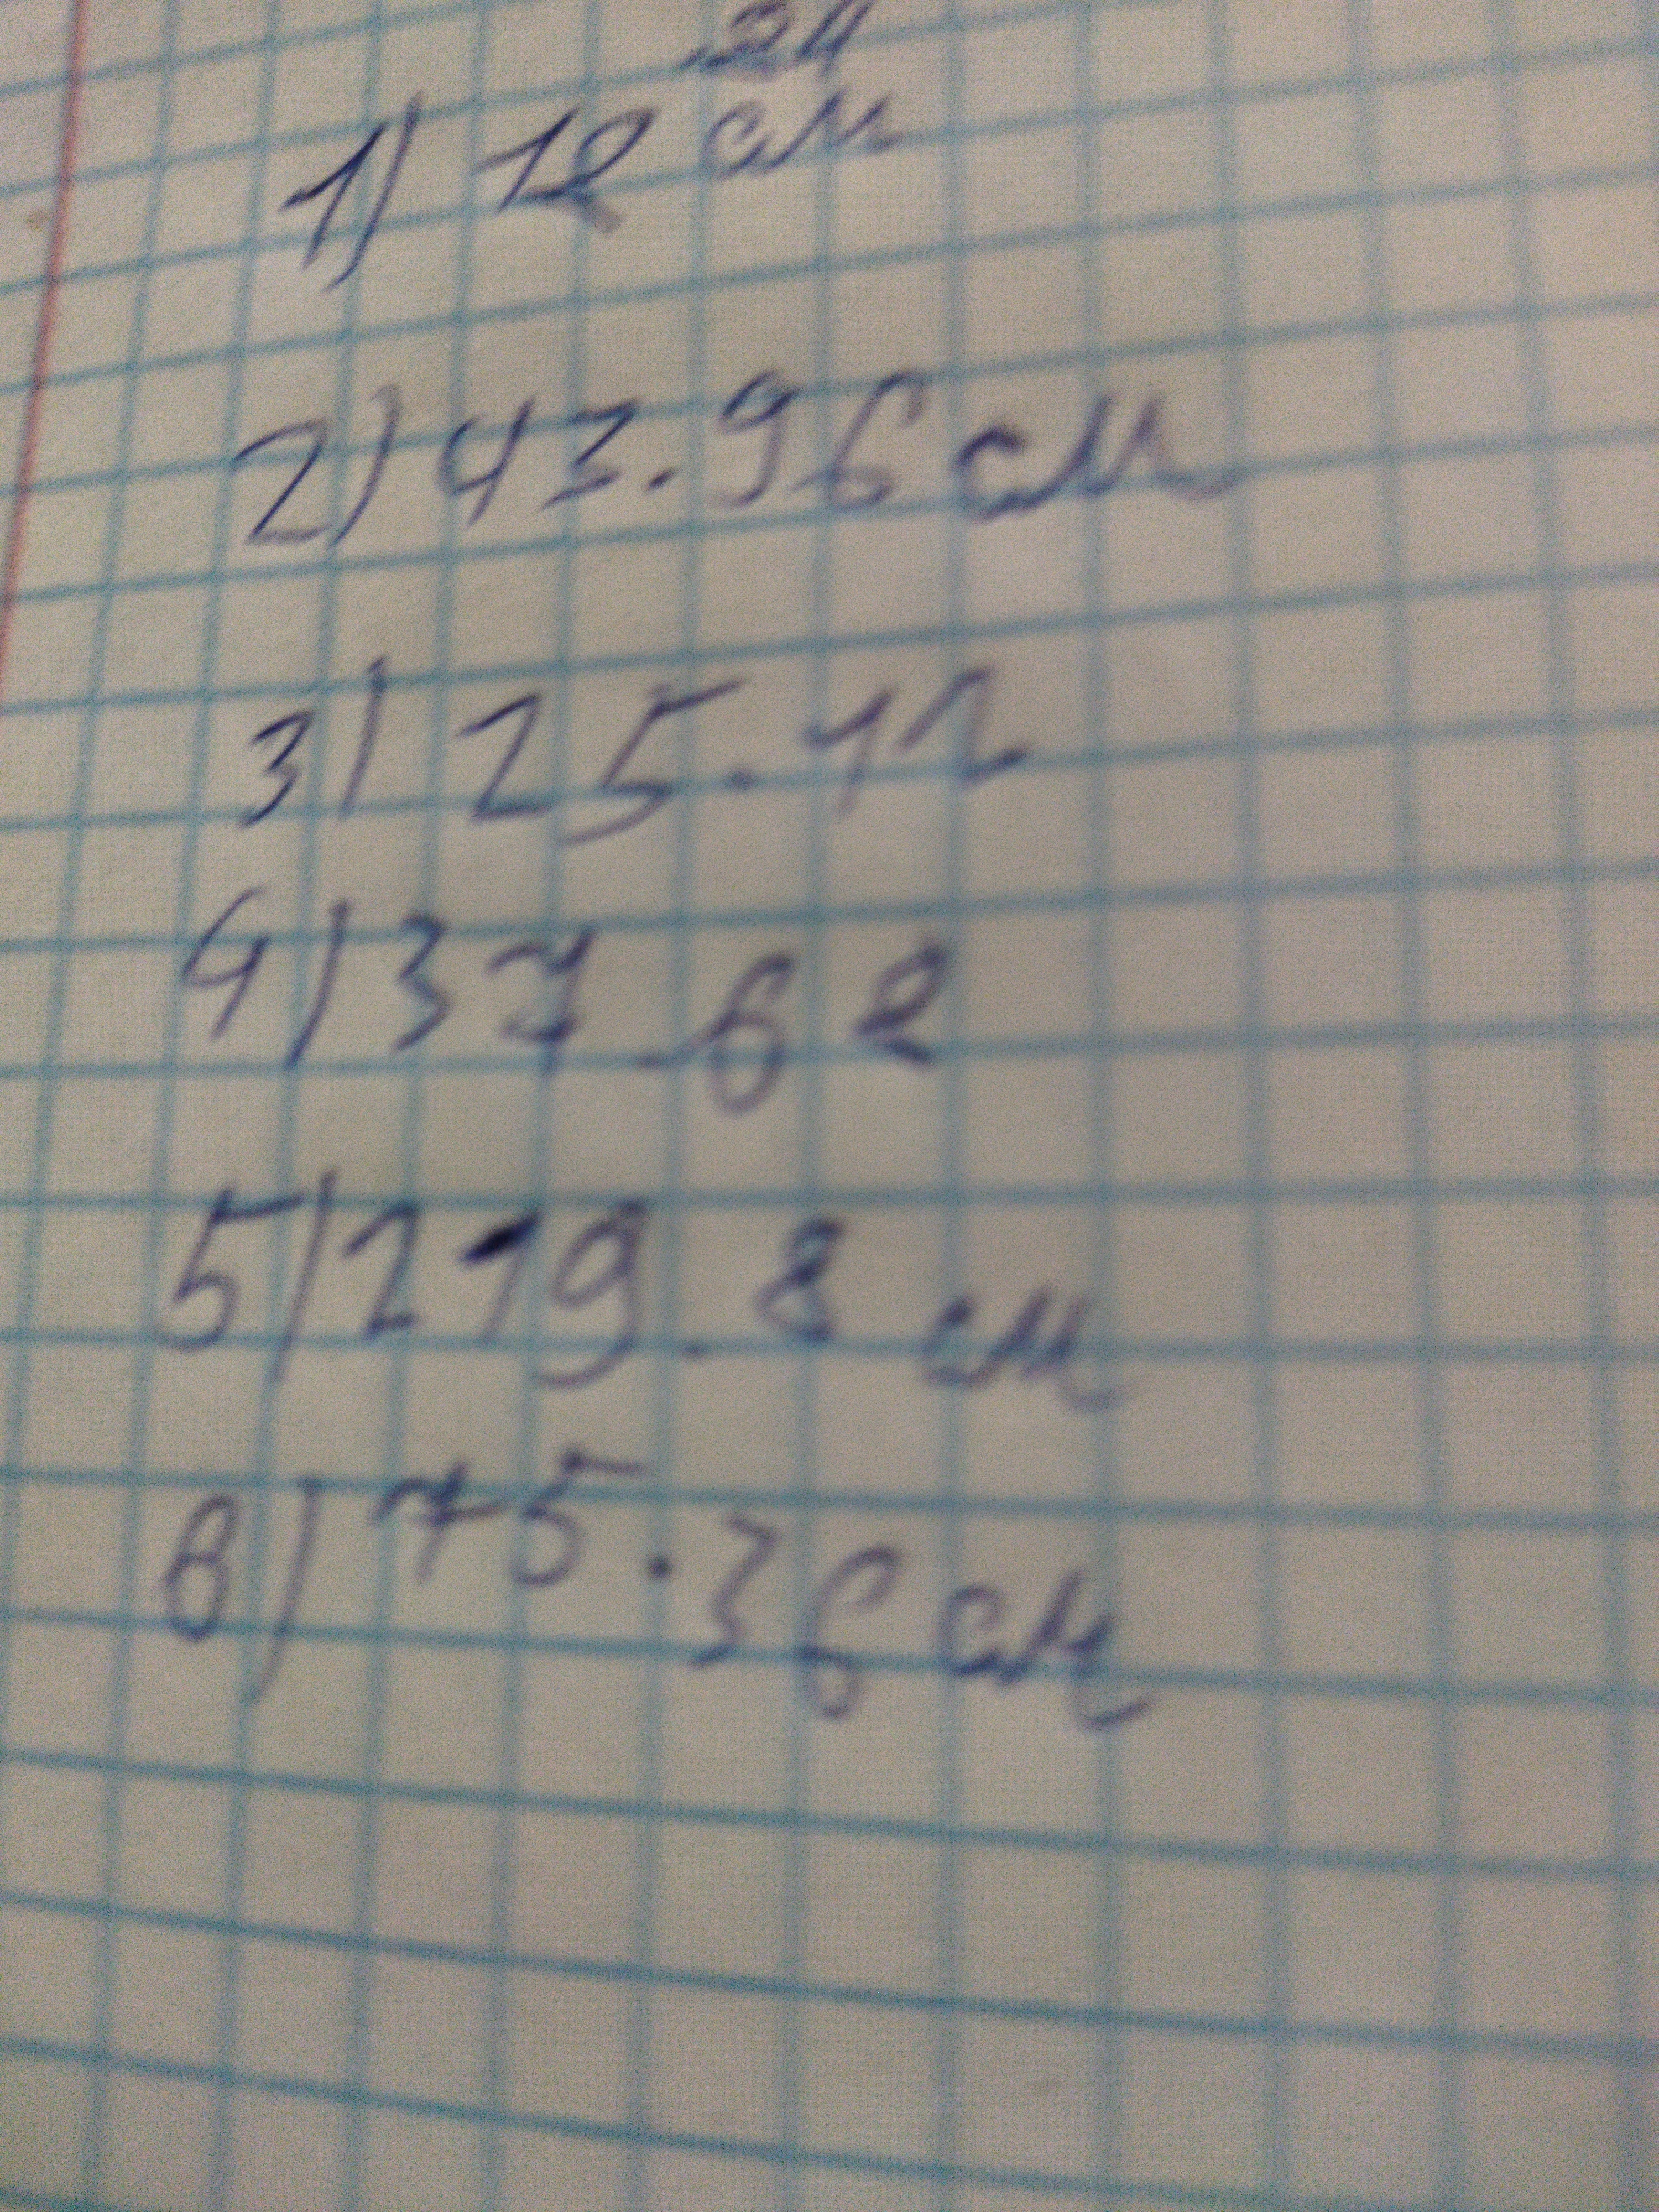 24
1) 12 см
2) 43.96 см
3) 25.12
4) 37.68
5) 219.8 см
6) 75.36 см